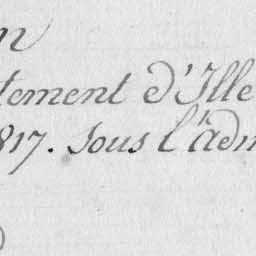 n
tement d'Ille
817. Sous l'adm